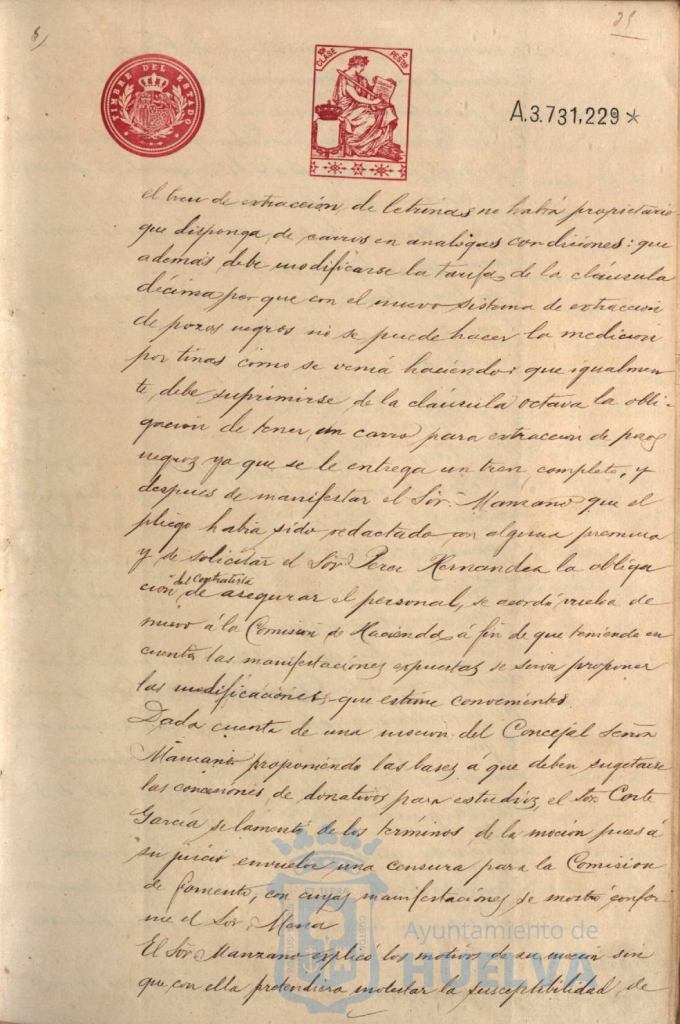 25
TIMBRE DEL ESTADO
10ª CLASE
2 PESTAS
A.3.731,229*
el tren de extracción de letrinas no habrá propietario
que disponga de carros en analogas condiciones: que
además debe modificarse la tarifa de la cláusula
décima por que con el nuevo sistema de extraccion
de pozos negros no se puede hacer la medicion
por tinas como se venia haciendo: que igualmen
te, debe suprimirse de la cláusula octava la obli-
gacion de tener un carro para extraccion de pozos
negros ya que se le entrega un tren completo, y
despues de manifestar el Sor. Manzano que el
pliego habia sido redactado con alguna premura
y de solicitar el Sor Perez Hernandez la obliga
cion del Contratista de asegurar el personal, se acordó vuelva de
nuevo á la Comision de Hacienda á fin de que teniendo en
cuenta las manifestaciones expuestas se sirva proponer
las modificaciones que estime convenientes.
Dada cuenta de una mocion del Concejal Señor
Manzano proponiendo las bases á que deben sugetarse
las concesiones de donativos para estudios, el Sor. Corte
Garcia se lamentó de los terminos de la mocion pues á
su juicio envuelve una censura para la Comision
de Fomento, con cuyas manifestaciones se mostró confor
me el Sor.
El Sor Manzano explicó los motivos de su mocion sin
que con ella pretendiera molestar la susceptibilidad de
Ayuntamiento de
HUELVA